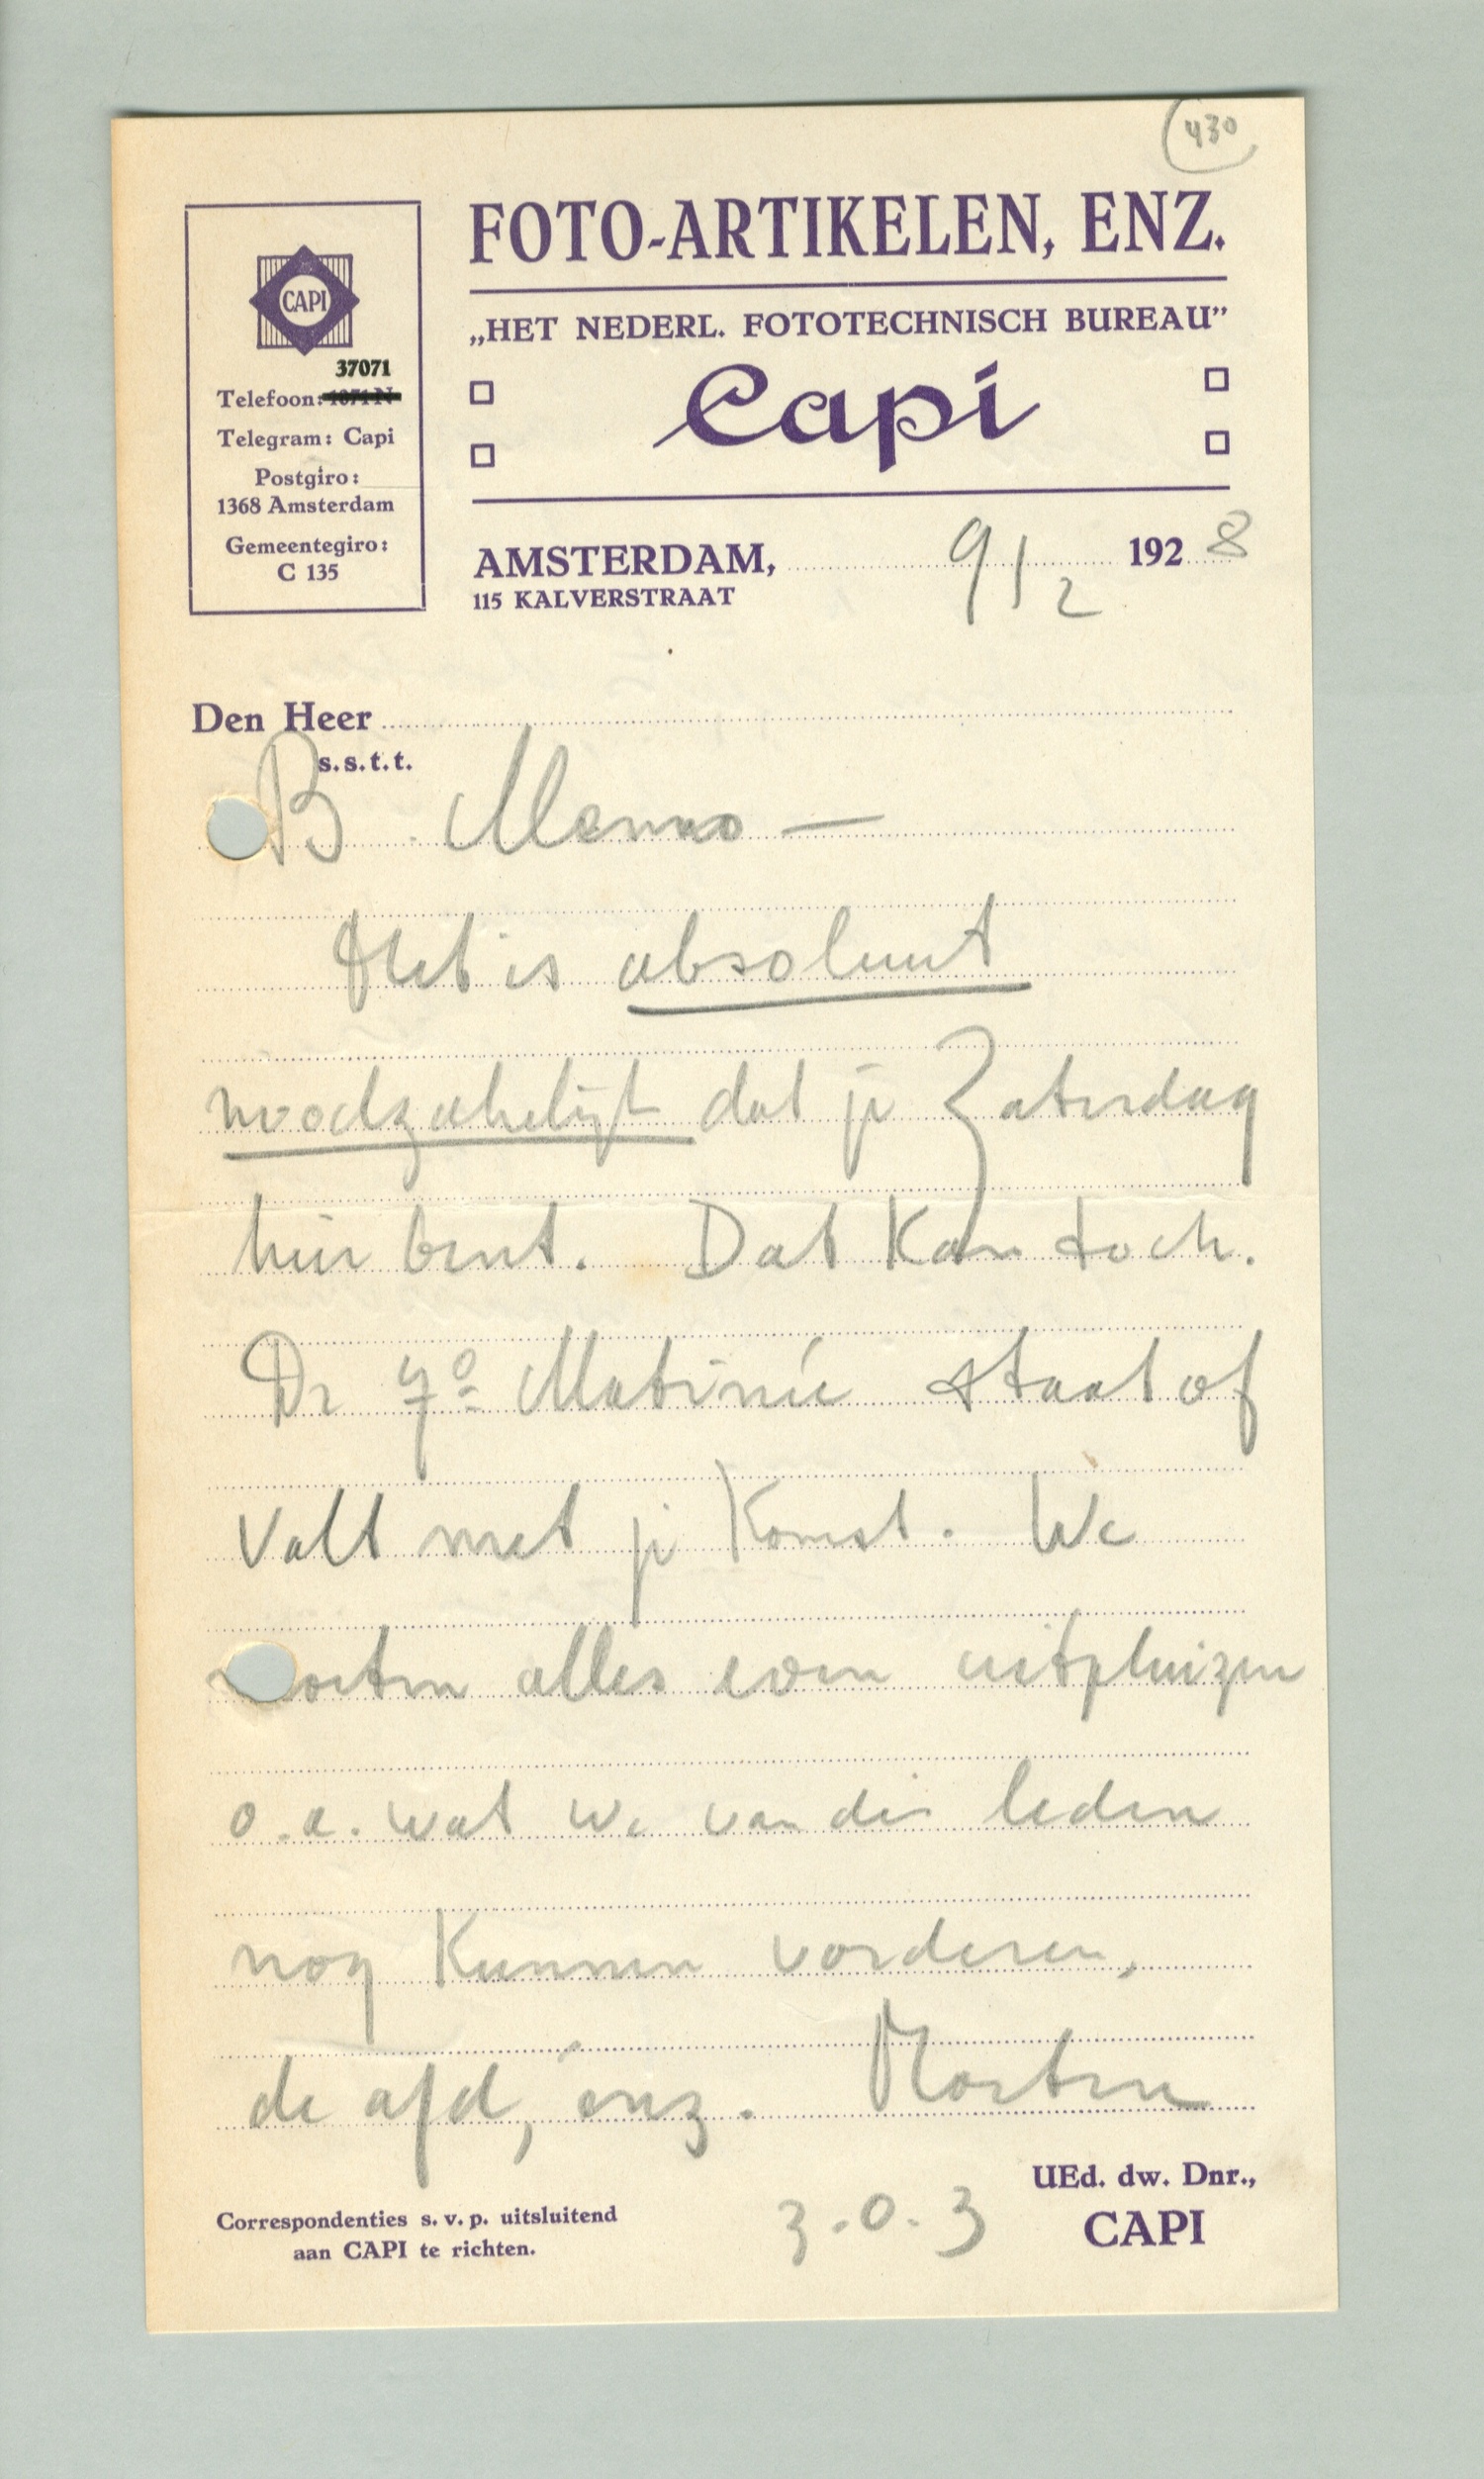 430
FOTO-ARTIKELEN, ENZ.
„HET NEDERL. FOTOTECHNISCH BUREAU”
Capi
CAPI
37071
Telefoon:
Telegram: Capi
Postgiro:
1368 Amsterdam
Gemeentegiro:
C 135
AMSTERDAM, 9/2 1928
115 KALVERSTRAAT
Den Heer
s.s.t.t.
B. Menno —
Het is absoluut
noodzakelijk dat je Zaterdag
hier bent. Dat kan toch.
De 7º Matinée staat of
valt met je komst. We
moeten alles even uitpluizen
o.a. wat we van die leden
nog kunnen vorderen,
de afd, enz. Moeten
3-0-3
UEd. dw. Dnr.,
CAPI
Correspondenties s.v.p. uitsluitend
aan CAPI te richten.